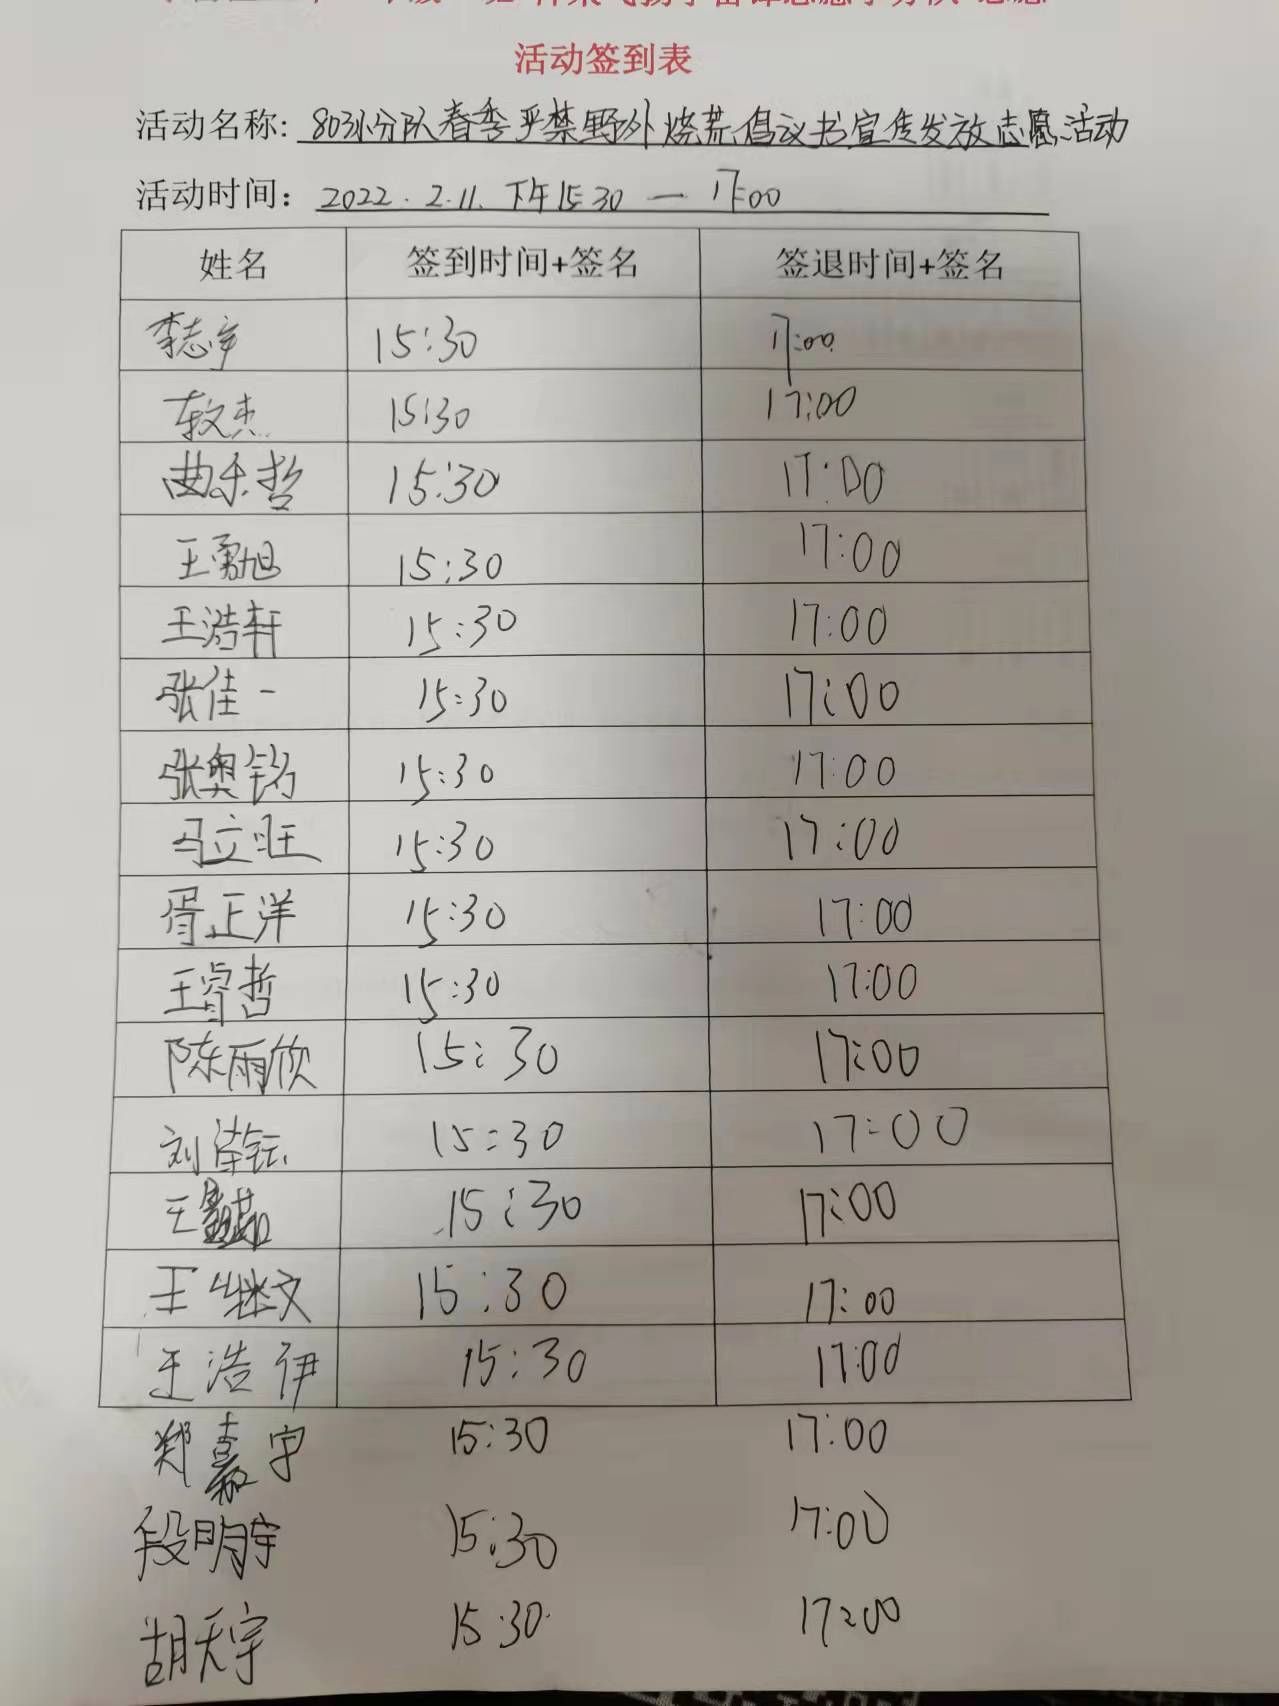 活动签到表
活动名称: 803小分队春季严禁野外烧荒倡议书宣传发放志愿活动
活动时间: 2022.2.11. 下午15:30 — 17:00
姓名 签到时间+签名 签退时间+签名
李志宇 15:30 17:00
15:30 17:00
曲乐哲 15:30 17:00
王勇旭 15:30 17:00
王浩轩 15:30 17:00
张佳一 15:30 17:00
张奥铭 15:30 17:00
马立旺 15:30 17:00
胥正洋 15:30 17:00
王睿哲 15:30 17:00
陈雨欣 15:30 17:00
刘泽钰 15:30 17:00
王 15:30 17:00
王继文 15:30 17:00
王浩伊 15:30 17:00
郑嘉宇 15:30 17:00
段明宇 15:30 17:00
胡天宇 15:30 17:00